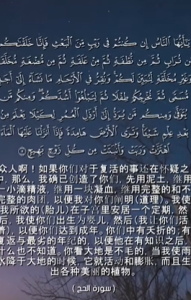 يَٰٓأَيُّهَا ٱلنَّاسُ إِن كُنتُمْ فِى رَيْبٍ مِّنَ ٱلْبَعْثِ فَإِنَّا خَلَقْنَٰكُم
مِّن تُرَابٍ ثُمَّ مِن نُّطْفَةٍ ثُمَّ مِنْ عَلَقَةٍ ثُمَّ مِن مُّضْغَةٍ
مُّخَلَّقَةٍ وَغَيْرِ مُخَلَّقَةٍ لِّنُبَيِّنَ لَكُمْ وَنُقِرُّ فِى ٱلْأَرْحَامِ مَا نَشَآءُ إِلَىٰٓ أَجَلٍ
مُّسَمًّى ثُمَّ نُخْرِجُكُمْ طِفْلًا ثُمَّ لِتَبْلُغُوٓا۟ أَشُدَّكُمْ وَمِنكُم مَّن
يُتَوَفَّىٰ وَمِنكُم مَّن يُرَدُّ إِلَىٰٓ أَرْذَلِ ٱلْعُمُرِ لِكَيْلَا يَعْلَمَ مِنۢ
بَعْدِ عِلْمٍ شَيْـًٔا وَتَرَى ٱلْأَرْضَ هَامِدَةً فَإِذَآ أَنزَلْنَا عَلَيْهَا ٱلْمَآءَ
ٱهْتَزَّتْ وَرَبَتْ وَأَنۢبَتَتْ مِن كُلِّ زَوْجٍۭ بَهِيجٍ
众人啊！如果你们对于复活的事还在怀疑之
中，那么，我确已创造了你们，先用泥土，继用
一小滴精液，继用一块凝血，继用完整的和不
完整的肉团，以便我对你们阐明（道理）。我使
我所欲的（胎儿）在子宫里安居一个定期，然
后，我使你们出生为婴儿，然后（我让你们活
着），以便你们达到成年。你们中有夭折的；有
复返于最劣的年纪的，以便他在有知识之后，
什么也不知道。你看大地是不毛的，当我使雨
水降于大地的时候，它就活动和膨胀，而且生
出各种美丽的植物。
(سورة الحج)